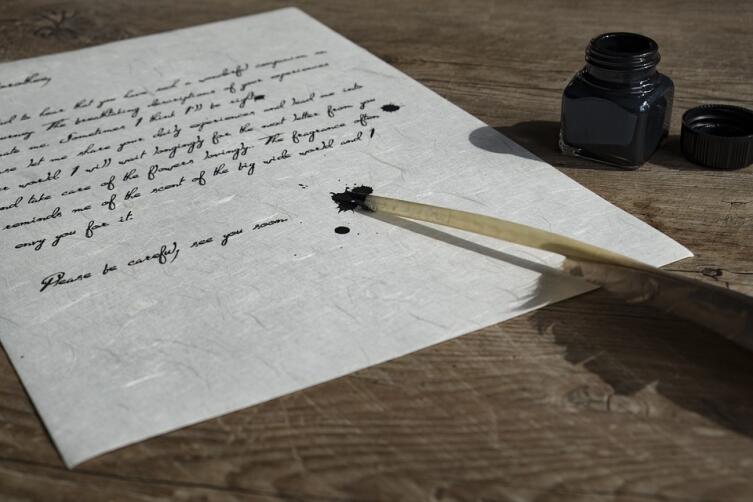 to hear that you have such a wonderful companion on
The breathtaking descriptions of your experiences
me. Sometimes I think I'll be right
let me share your daily experiences and send me into
world. I will wait longingly for the next letter from you
and take care of the flowers lovingly. The fragrance often
reminds me of the scent of the big wide world and I
envy you for it.
Please be careful, see you soon.